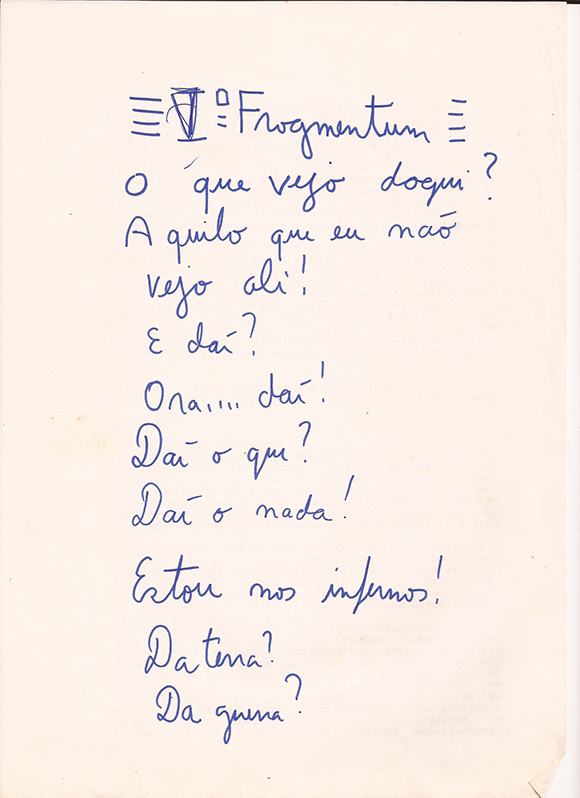 Vº Fragmentum
O que vejo daqui?
Aquilo que eu não
vejo ali!
E daí?
Ora.... daí!
Daí o que?
Daí o nada!
Estou nos infernos!
Da terra?
Da guerra?